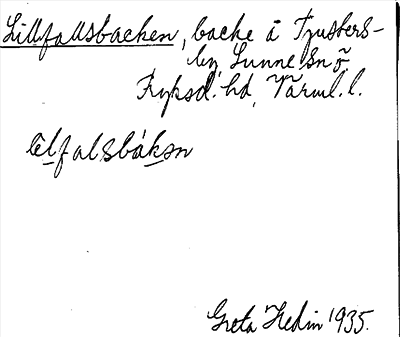 Lillfallsbacken, backe å Tjusbers-
by, Sunne sn ö.
Fryksd. hd, Värml. l.
lɪlfalsbakən
Greta Hedin 1935.